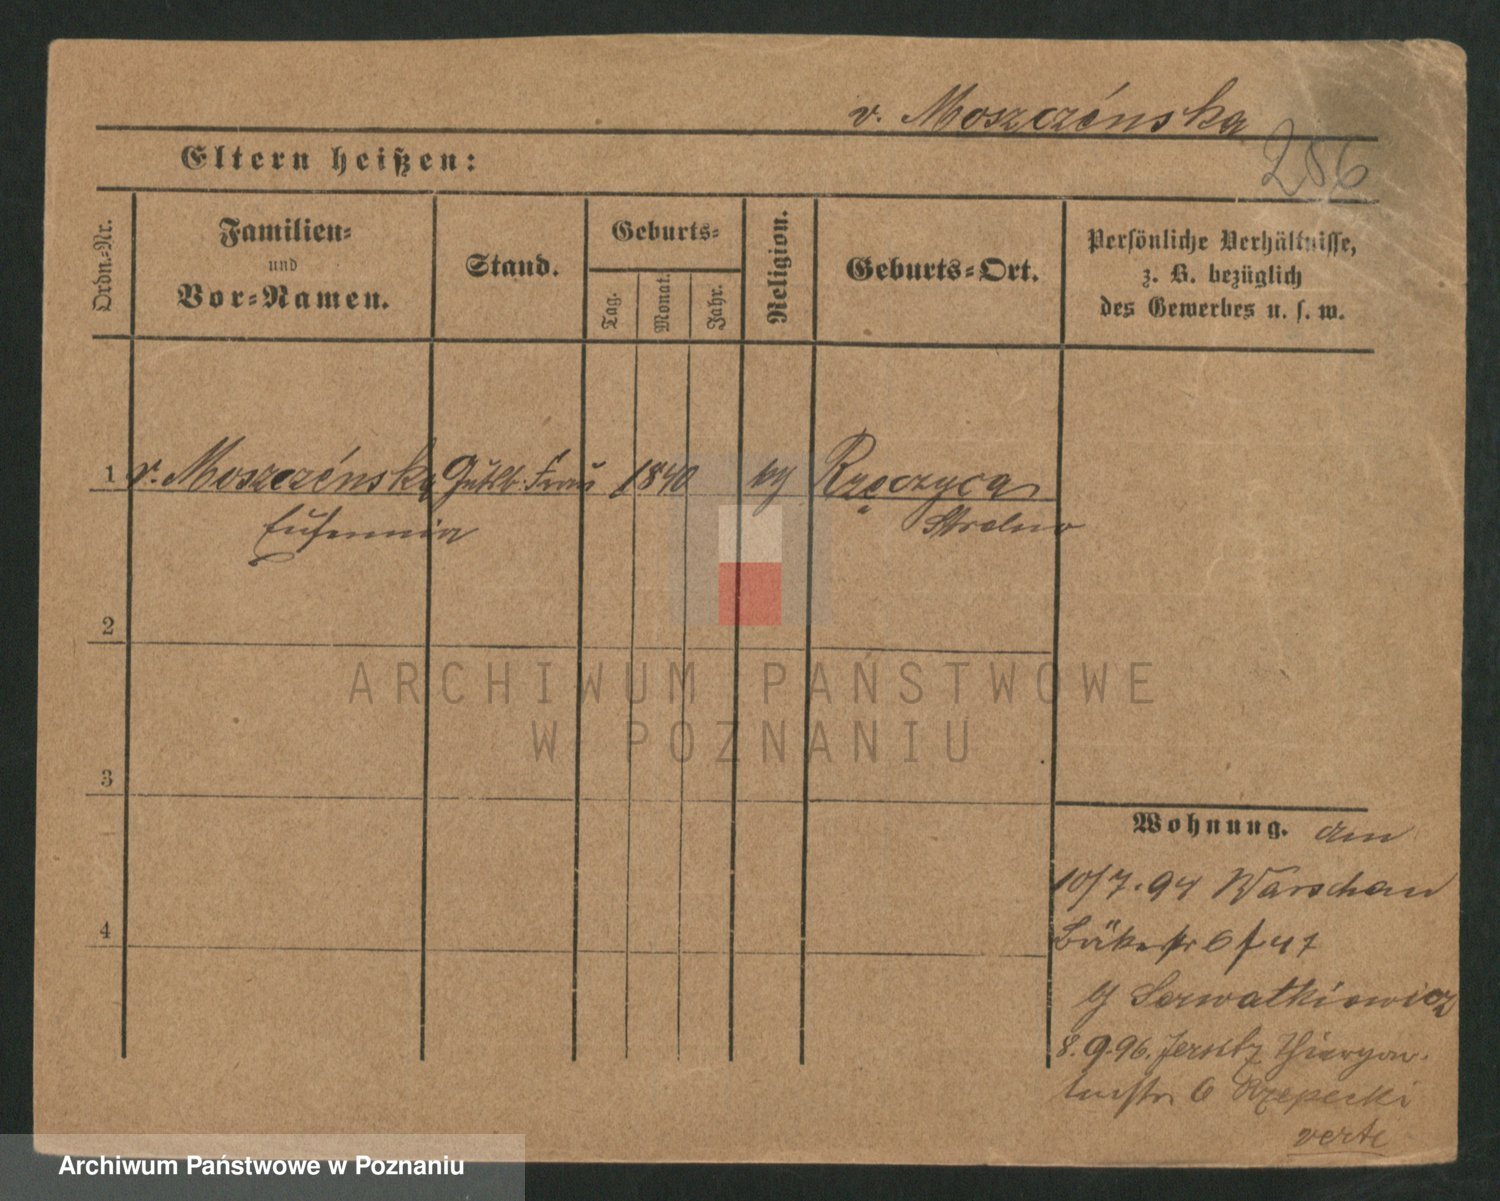 v. Moszczénska
286
Eltern heißen:
Ordn.-Nr.
Familien-
und
Vor-Namen.
Stand.
Geburts-
Tag.
Monat.
Jahr.
Religion.
Geburts-Ort.
Persönliche Verhältnisse,
z. B. bezüglich
des Gewerbes u. s. w.
1 v. Moszczénska Gutsb. Frau 1840 Rzęczyca
Eufemnia Strelno
2
ARCHIWUM PAŃSTWOWE
W POZNANIU
3
Wohnung. am
10/7.94 Warschau
4
Bäkerstr 6 f 47
Serwatkiewicz
8.9.96. Jersitz Thiergar-
tenstr. 6 Rzepecki
verte
Archiwum Państwowe w Poznaniu